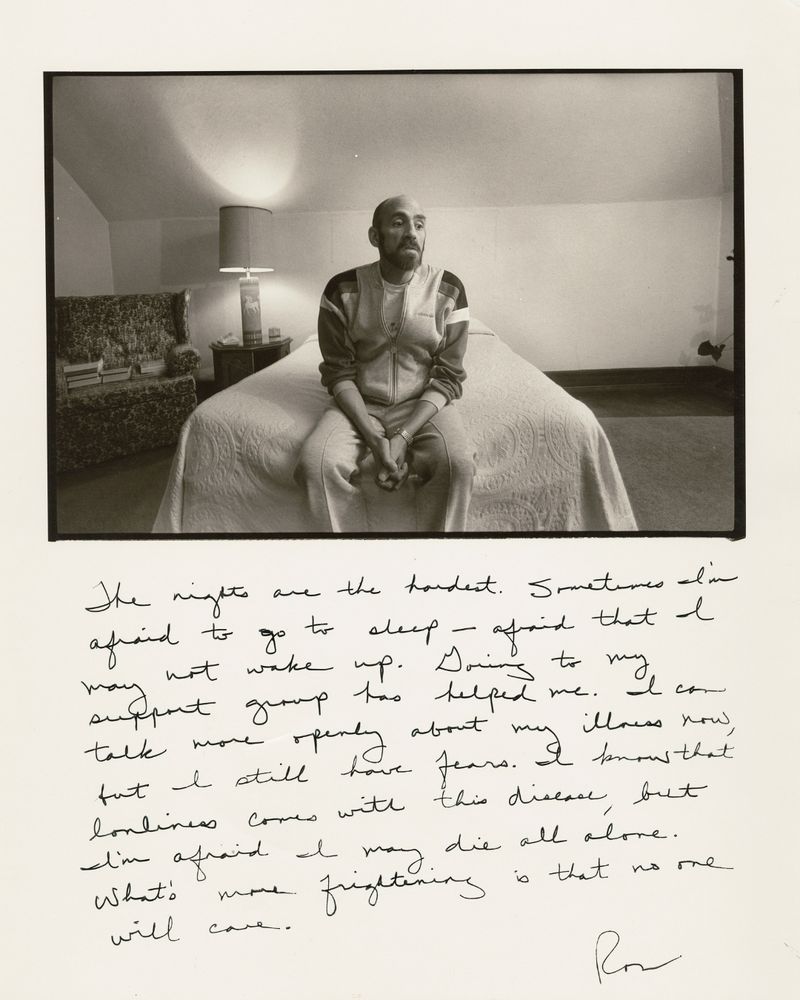 The nights are the hardest. Sometimes I'm
afraid to go to sleep – afraid that I
may not wake up. Going to my
support group has helped me. I can
talk more openly about my illness now,
but I still have fears. I know that
lonliness comes with this disease, but
I'm afraid I may die all alone.
What's more frightening is that no one
will care.
Ron